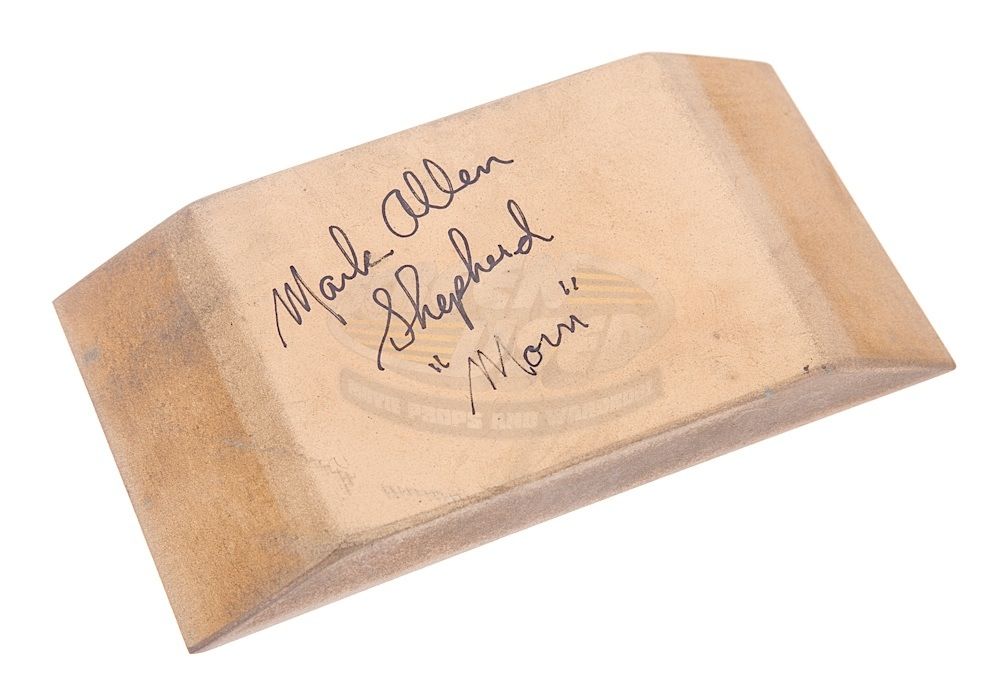 Mark Allen
Shepherd
"Morn"
MOVIE PROPS AND WARDROBE